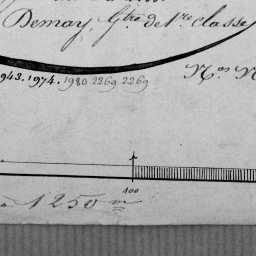 Demay, Gtre de 1re classe
943. 1974. 1980 2269 2269
Nos N
100
à 1250 m